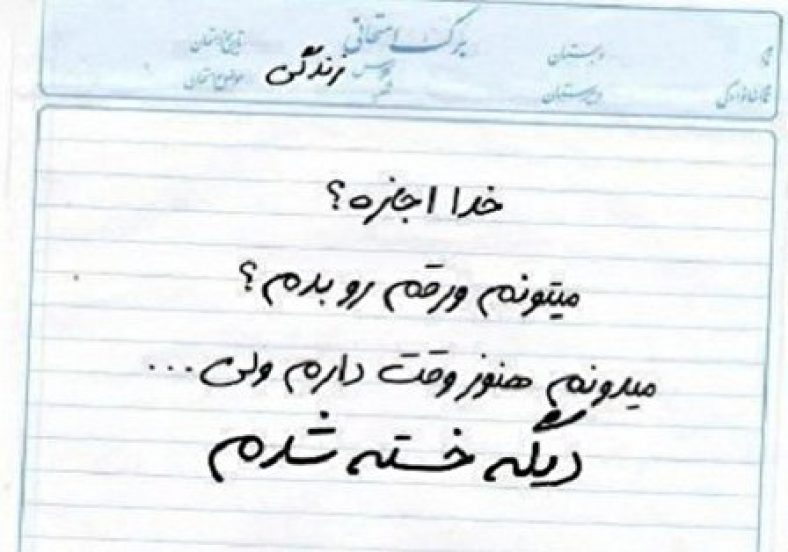 برگ امتحانی
نام
دبستان
تاریخ امتحان
نام خانوادگی
دبیرستان
زندگی
موضوع امتحان
خدا اجازه؟
میتونم ورقم رو بدم؟
میدونم هنوز وقت دارم ولی...
دیگه خسته شدم